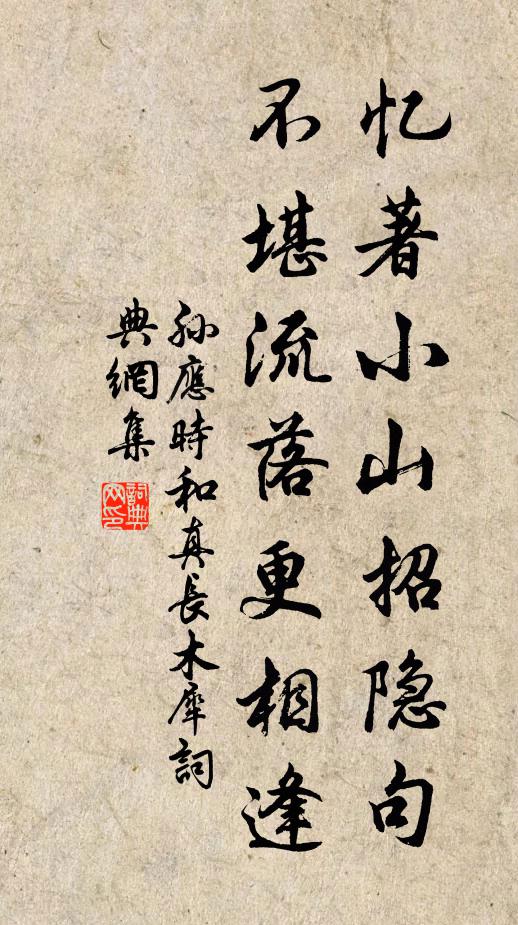 忆著小山招隐句
不堪流落更相逢
孙應時和真長木犀詞
典網集
詞典网印